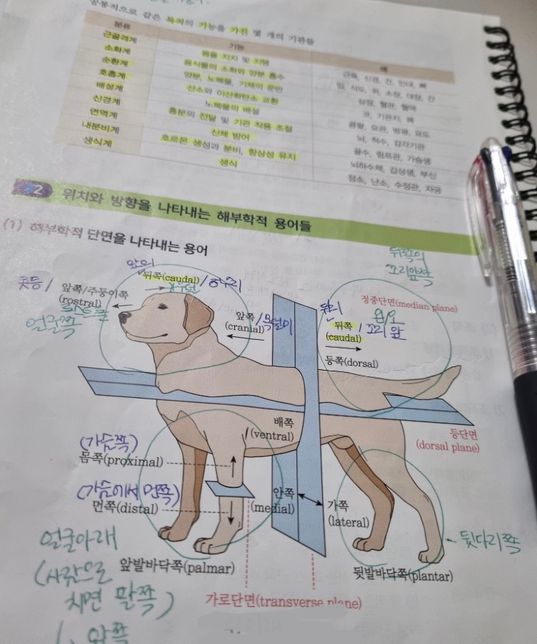 공통적으로 같은 목적의 기능을 가진 몇 개의 기관들
분류 기능 예
근골격계 몸을 지지 및 지탱 근육, 신경, 건, 인대, 뼈
소화계 음식물의 소화와 양분 흡수 입, 식도, 위, 소장, 대장, 간
순환계 양분, 노폐물, 기체의 운반 심장, 혈관, 혈액
호흡계 산소와 이산화탄소 교환 코, 기관지, 폐
배설계 노폐물의 배설 콩팥, 요관, 방광, 요도
신경계 흥분의 전달 및 기관 작용 조절 뇌, 척수, 감각기관
면역계 신체 방어 골수, 림프관, 가슴샘
내분비계 호르몬 생성과 분비, 항상성 유지 뇌하수체, 갑상샘, 부신
생식계 생식 정소, 난소, 수정관, 자궁
2 위치와 방향을 나타내는 해부학적 용어들
(1) 해부학적 단면을 나타내는 용어
뒤쪽(caudal)
콧등/
앞쪽/주둥이쪽
(rostral)
얼굴쪽
앞쪽
(cranial)
뒤쪽
(caudal)
등쪽(dorsal)
정중단면(median plane)
배쪽
(ventral)
등단면
(dorsal plane)
(가슴쪽)
몸쪽(proximal)
(가슴에서 먼쪽)
먼쪽(distal)
안쪽
(medial)
가쪽
(lateral)
얼굴아래
(사람으로
치면 팔쪽)
앞발바닥쪽(palmar)
뒷다리쪽
뒷발바닥쪽(plantar)
가로단면(transverse plane)
앞쪽